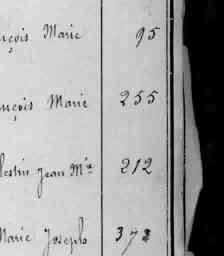 nçois Marie 95
nçois Marie 255
lestin Jean Mie 212
Marie Joseph 372